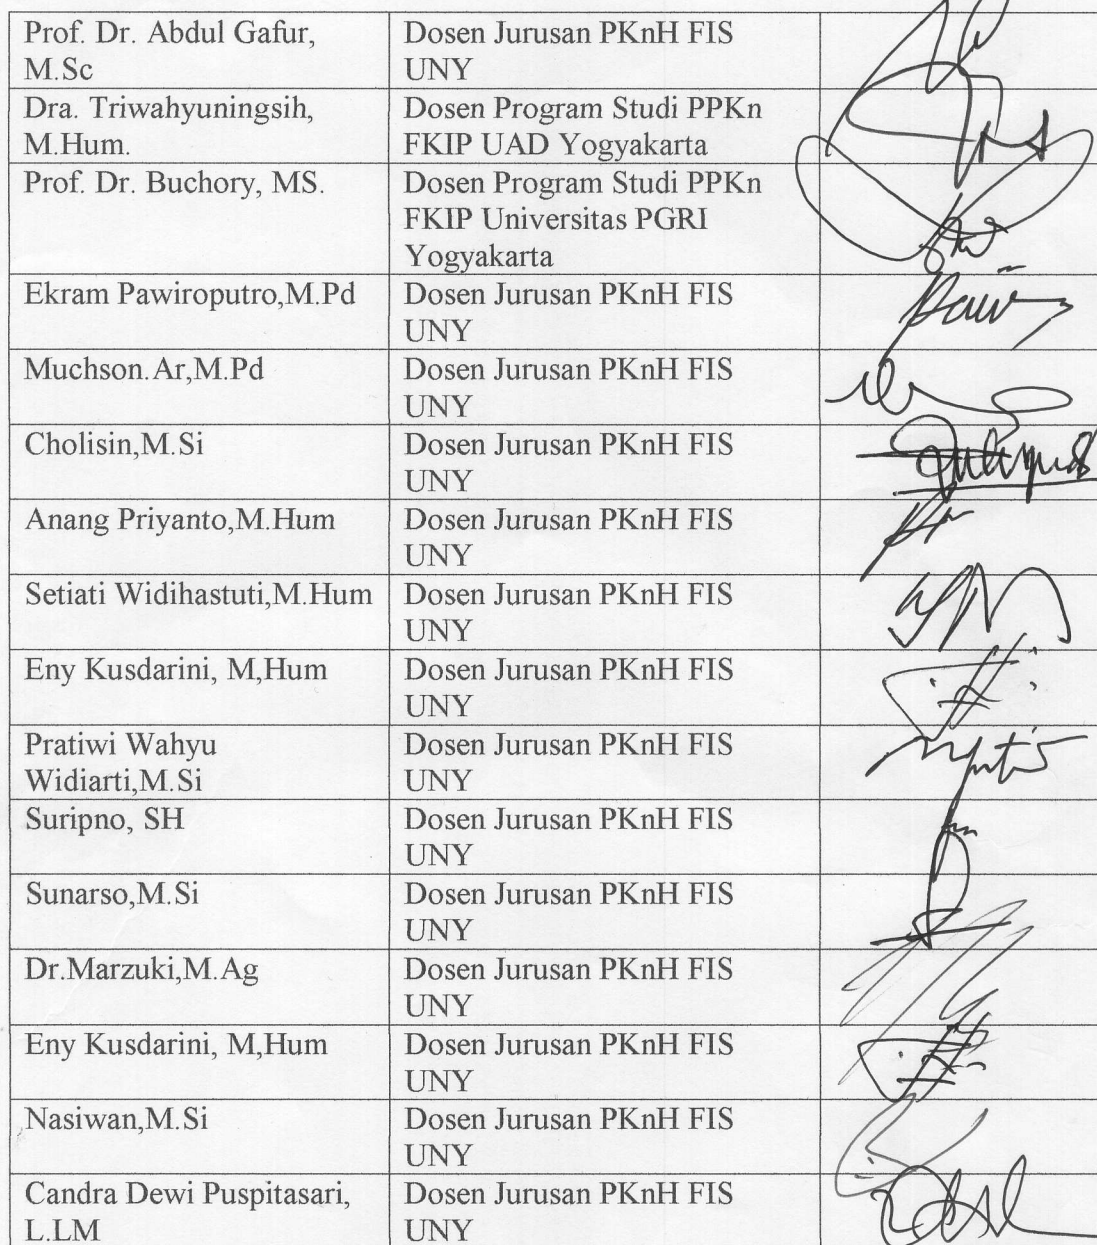 Prof. Dr. Abdul Gafur,
M.Sc
Dosen Jurusan PKnH FIS
UNY
Dra. Triwahyuningsih,
M.Hum.
Dosen Program Studi PPKn
FKIP UAD Yogyakarta
Prof. Dr. Buchory, MS.
Dosen Program Studi PPKn
FKIP Universitas PGRI
Yogyakarta
Ekram Pawiroputro,M.Pd
Dosen Jurusan PKnH FIS
UNY
Muchson.Ar,M.Pd
Dosen Jurusan PKnH FIS
UNY
Cholisin,M.Si
Dosen Jurusan PKnH FIS
UNY
Anang Priyanto,M.Hum
Dosen Jurusan PKnH FIS
UNY
Setiati Widihastuti,M.Hum
Dosen Jurusan PKnH FIS
UNY
Eny Kusdarini, M,Hum
Dosen Jurusan PKnH FIS
UNY
Pratiwi Wahyu
Widiarti,M.Si
Dosen Jurusan PKnH FIS
UNY
Suripno, SH
Dosen Jurusan PKnH FIS
UNY
Sunarso,M.Si
Dosen Jurusan PKnH FIS
UNY
Dr.Marzuki,M.Ag
Dosen Jurusan PKnH FIS
UNY
Eny Kusdarini, M,Hum
Dosen Jurusan PKnH FIS
UNY
Nasiwan,M.Si
Dosen Jurusan PKnH FIS
UNY
Candra Dewi Puspitasari,
L.LM
Dosen Jurusan PKnH FIS
UNY